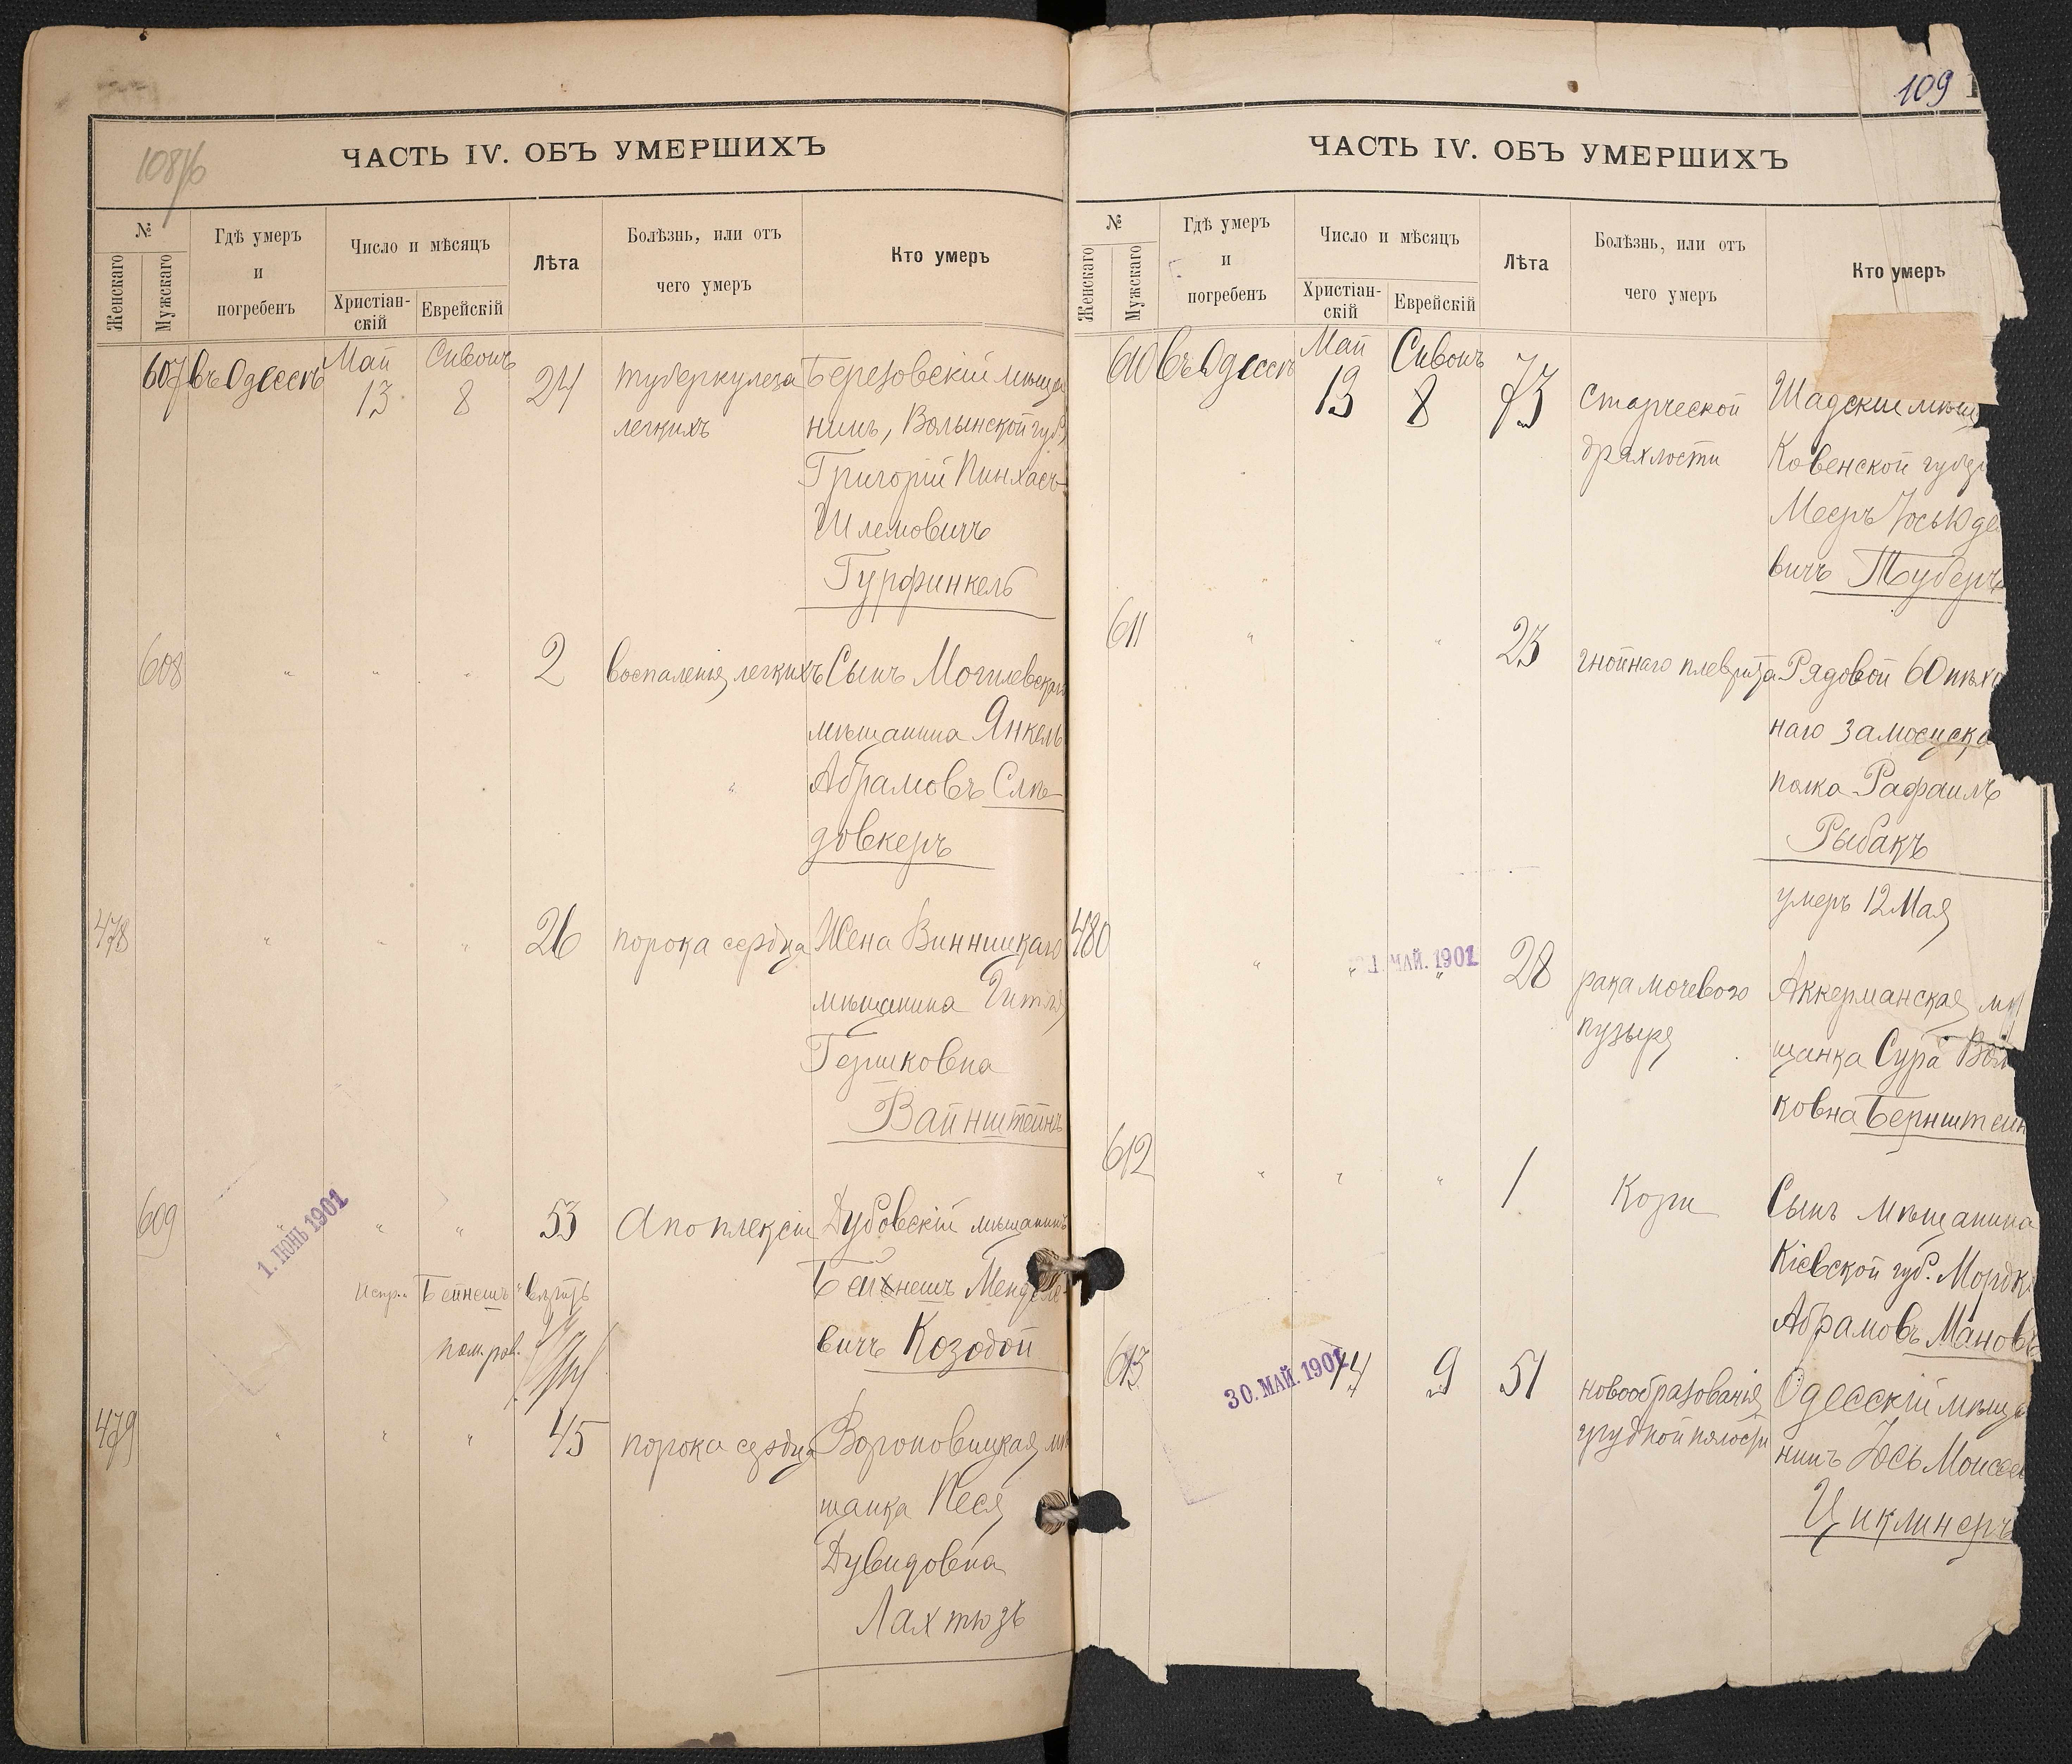 108/б
ЧАСТЬ IV. ОБЪ УМЕРШИХЪ
№
Женскаго
Мужскаго
Гдѣ умеръ
и
погребенъ
Число и мѣсяцъ
Христіан-
скій
Еврейскій
Лѣта
Болѣзнь, или отъ
чего умеръ
Кто умеръ
607 въ Одессѣ Май 13 Сивонъ 8 24
туберкулеза
легкихъ
Березовскій мѣща
нинъ, Волынской губ.
Григорій Пинхасъ-
Шлемовичъ
Гурфинкель
608 " " " 2
воспаленія легкихъ
Сынъ Могилевскаго
мѣщанина Янкель
Абрамовъ Слѣ-
довкеръ
478 " " " 26
порока сердца
Жена Винницкаго
мѣщанина Гитля
Гершковна
Вайнштейнъ
609 " " " 53
1. ІЮНЬ 1901
Апоплексіи
Дубовскій мѣщанинъ
Бейхнешъ Менделе-
вичъ Козодой
испр. "Бейнешъ" вѣрить
пом. рав.
479 " " " 45
порока сердца
Вороновицкая мѣ
щанка Песя
Дувидовна
Лахтюзъ
109
ЧАСТЬ IV. ОБЪ УМЕРШИХЪ
№
Женскаго
Мужскаго
Гдѣ умеръ
и
погребенъ
Число и мѣсяцъ
Христіан-
скій
Еврейскій
Лѣта
Болѣзнь, или отъ
чего умеръ
Кто умеръ
610 въ Одессѣ Май 13 Сивонъ 8 73
старческой
дряхлости
Шадскій мѣщ
Ковенской губер
Мееръ Іосъ Юде
вичъ Туберъ
611 " " " 23
гнойнаго плеврита
Рядовой 60 пѣхо
наго Замосцска
полка Рафаилъ
Рыбакъ
умеръ 12 Мая
480 " " " 28
МАЙ. 1901
рака мочевого
пузыря
Аккерманская мѣ
щанка Сура Воль
ковна Бернштейн
612 " " " 1
Кори
Сынъ мѣщанина
Кіевской губ. Мордк
Абрамовъ Мановъ
613 14 9 51
30. МАЙ. 1901
новообразованія
грудной полости
Одесскій мѣща
нинъ Іось Моисее
Циклинеръ